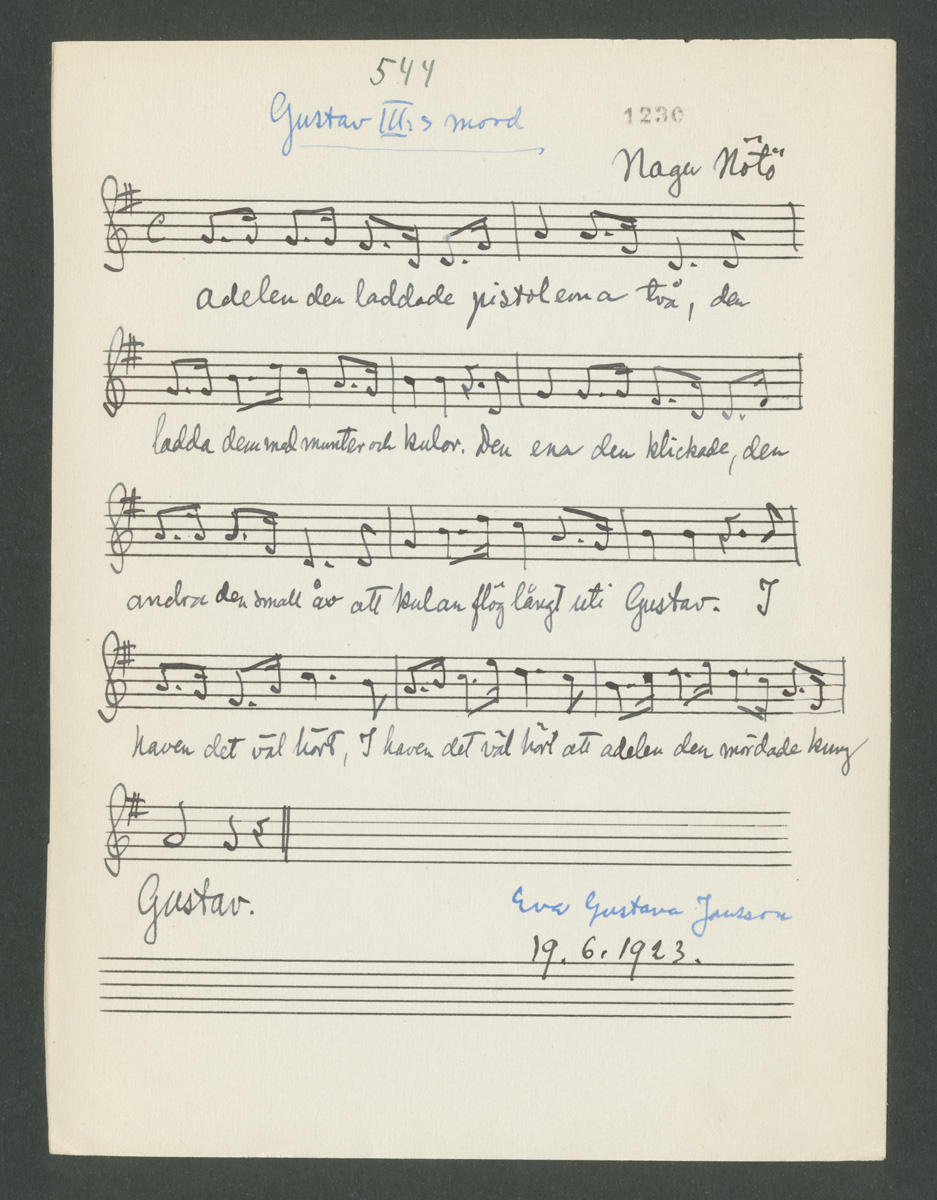 544
Gustav III:s mord
1230
Nagu Nötö
adelen den laddade pistolerna två, den
ladda dem med munter och kulor. Den ena den klickade, den
andra den small åv att kulan flög långt uti Gustav. I
haven det väl hört, I haven det väl hört att adelen den mördade kung
Gustav.
Eva Gustava Jansson
19. 6. 1923.